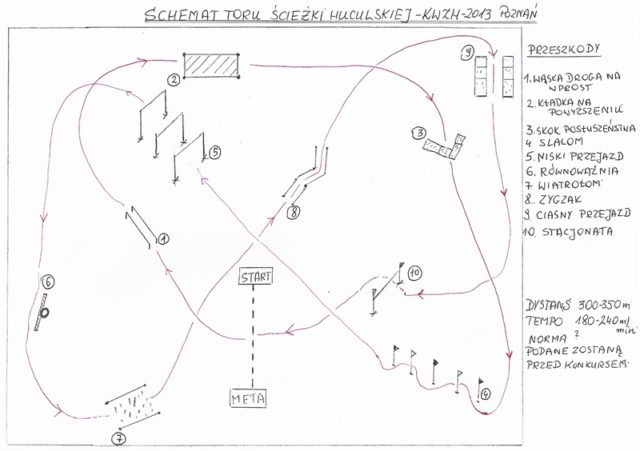 SCHEMAT TORU ŚCIEŻKI HUCULSKIEJ - KWZH - 2013 POZNAŃ
PRZESZKODY
1. WĄSKA DROGA NA
WPROST
2. KŁADKA NA
PODWYŻSZENIU
3. SKOK POSŁUSZEŃSTWA
4 SLALOM
5. NISKI PRZEJAZD
6. RÓWNOWAŻNIA
7 WIATROŁOM
8. ZYGZAK
9. CIASNY PRZEJAZD
10. STACJONATA
DYSTANS 300-350m
TEMPO 180-240m/min
NORMA ?
PODANE ZOSTANĄ
PRZED KONKURSEM
2
9
3
5
8
1
START
10
6
META
4
7